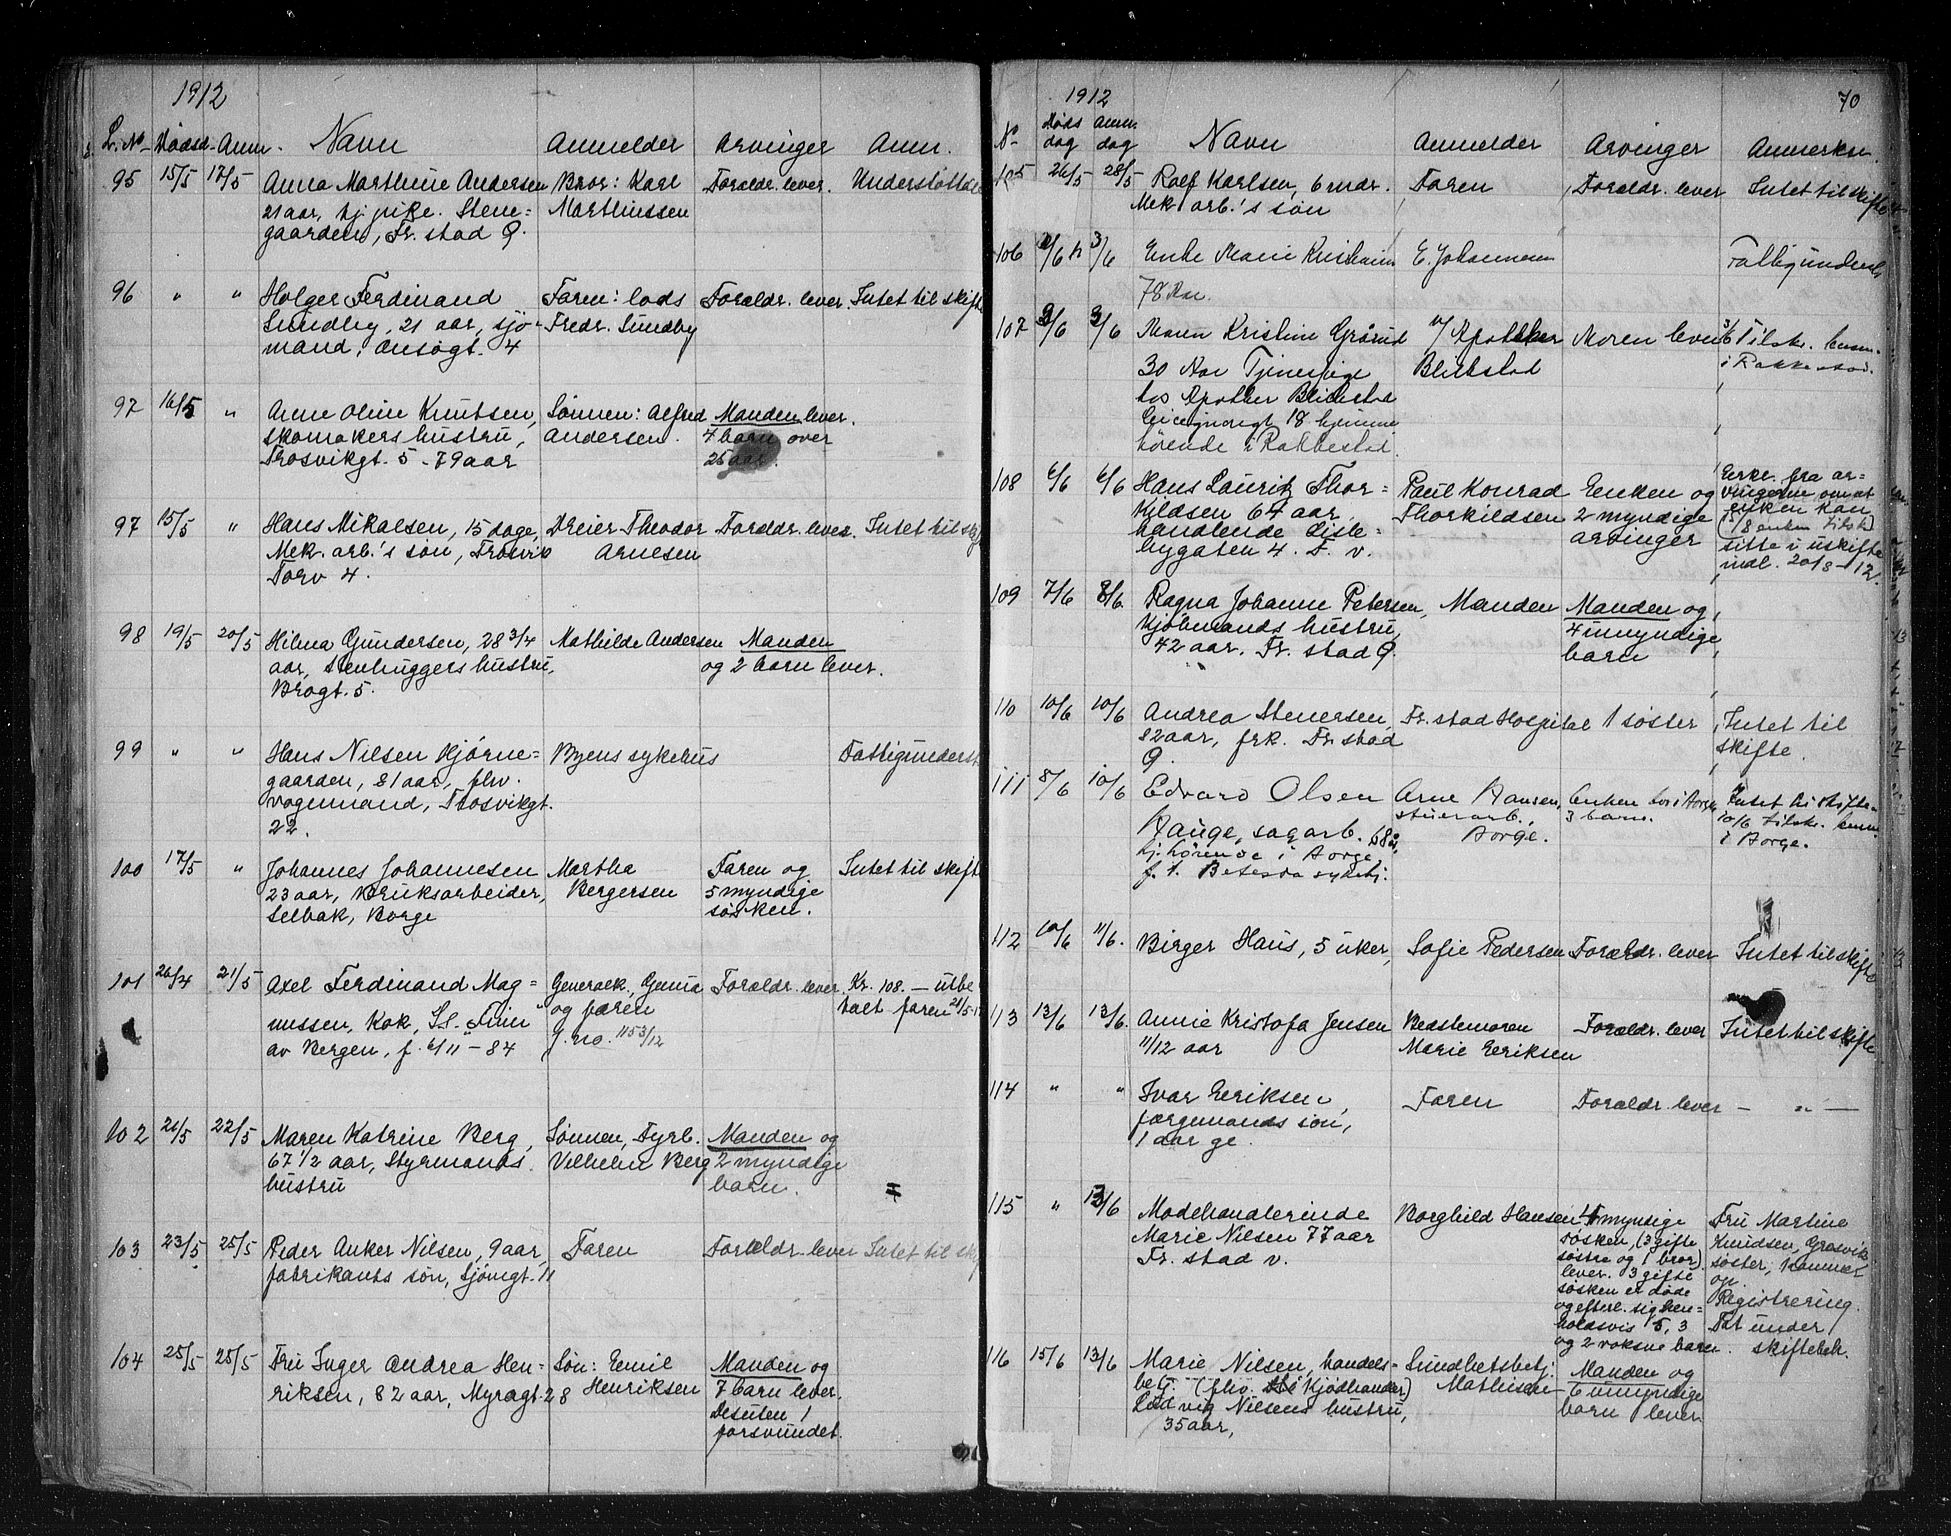 1912
L. No Dødsd. Anm. Navn Anmelder Arvinger Anm.
95 15/5 17/5 Anna Marthine Andersen Bror: Karl Foraldr. lever. Understøttet
21 aar, hj. pike. Stene= Marthinssen
gaarden, Fr. stad Ø.
96 " " Holger Ferdinand Faren: lods Foraldr. lever. Intet til skifte
Sundby, 21 aar, sjø- Fredr. Sundby
mand, Onsøgt. 4
97 16/5 " Anne Oline Knutsen, Sønnen: Alfred Manden lever.
skomakers hustru, Andersen. 4 barn over
Trosvikgt. 5 - 79 aar 25 aar.
97 15/5 " Hans Mikalsen, 15 dage, Dreier Theodor Foraldr. lever. Intet til skif
Mek. arb.'s søn, Trosvik Arnesen
Torv 4.
98 19/5 20/5 Hilma Gundersen, 28 3/4 Mathilde Andersen Manden
aar, stenhuggers hustru, og 2 barn lever.
Brogt. 5.
99 " " Hans Nilsen Hjørne= Byens sykehus Fattigunderst
gaarden, 81 aar, fhv.
vognmand, Trosvikgt.
22.
100 17/5 " Johannes Johannesen Martha Faren og Intet til skift
23 aar, Bruksarbeider, Bergersen 5 myndige
Selbak, Borge søsken.
101 26/4 21/5 Axel Ferdinand Mag= Generalk. Genua Foraldr. lever. Kr. 108.- utbe
nussen, Kok, SS. "Finn" og faren talt faren 21/5-1
av Bergen, f. 6/11-84 J. no. 1153/12
102 21/5 22/5 Maren Katrine Berg, Sønnen, Fyrb. Manden og
67 1/2 aar, Styrmands Vilhelm Berg 2 myndige
hustru barn.
103 23/5 25/5 Peder Anker Nilsen, 9 aar, Faren Foraldr. lever Intet til sk
fabrikants søn, Sjømgt. 11
104 25/5 25/5 Fru Inger Andrea Hen- Søn: Emil Manden og
riksen, 82 aar, Myragt. 28 Henriksen 7 barn lever.
Desuten 1
forsvundet.
1912 70
No Døds dag Anm. dag Navn Anmelder Arvinger Anmerkn.
105 26/5 28/5 Rolf Karlsen, 6 mdr. Faren Foraldr. lever Intet til skifte
Mek. arb.'s søn
106 2/6 3/6 Enke Marie E. Johannesen Fattigunderst
78 Aar.
107 3/6 3/6 Maren Kristine Grårud v/ Apotheker Moren lever 3/6 Tilskr. lensm.
30 Aar Tjenerpige Blichstad i Rakkestad.
hos Apotheker Blichstad
18 hjemme
hørende i Rakkestad.
108 6/6 6/6 Hans Lauritz Thor= Paul Konrad Enken og Erkl. fra ar-
kildsen 64 aar Thorkildsen 2 myndige vingerne om at
handlende Lisle= arvinger enken kan
bygaten 4. F. v. (8/8 enken tilskr.)
sitte i uskifte
indl. 20/8-12.
109 7/6 8/6. Ragna Johanne Petersen, Manden Manden og
Kjøbmands hustru, 4 umyndige
42 aar. Fr. stad Ø. barn
110 10/6 10/6 Andrea Stenersen Fr. stad Hospital 1 søster Intet til
82 aar, frk. Fr. stad skifte.
Ø.
111 8/6 10/6 Edvard Olsen Arne Hansen, Enken bor i Borge, Intet til skifte.
Hauge, sagarb. 68 år, stuerarb., 3 barn. 10/6 tilskr. lensm.
hj. hørende i Borge, Borge. i Borge.
f. t. Betesda sykehj.
112 10/6 11/6. Birger Haus, 5 uker, Sofie Pedersen Foraldr. lever Intet til skifte
113 13/6 13/6. Annie Kristofa Jensen Bedstemoren Foraldr. lever Intet til skifte
11/12 aar Marie Eriksen
114 " " Ivar Eriksen, Faren Foraldr. lever - " -
færgemands søn,
1 aar ge.
115 " 13/6 Modehandlerinde Borghild Hansen 4 myndige Fru Martine
Marie Nilsen 77 aar søsken, (3 gifte Knudsen, Græsvik
Fr. stad v. søstre og 1 bror). søster, kommer
lever. 3 gifte op.
søsken er døde Registrering.
og efterl. sig hen= Tat under
holdsvis 5, 3 skiftebeh.
og 2 voksne barn.
116 15/6 13/6 Marie Nilsen, handels= Sundhetsbetj. Manden og
betj. (fhv. Kjødhandler) Mathisen 6 umyndige
Ludvig Nilsens hustru, barn lever
35 aar,